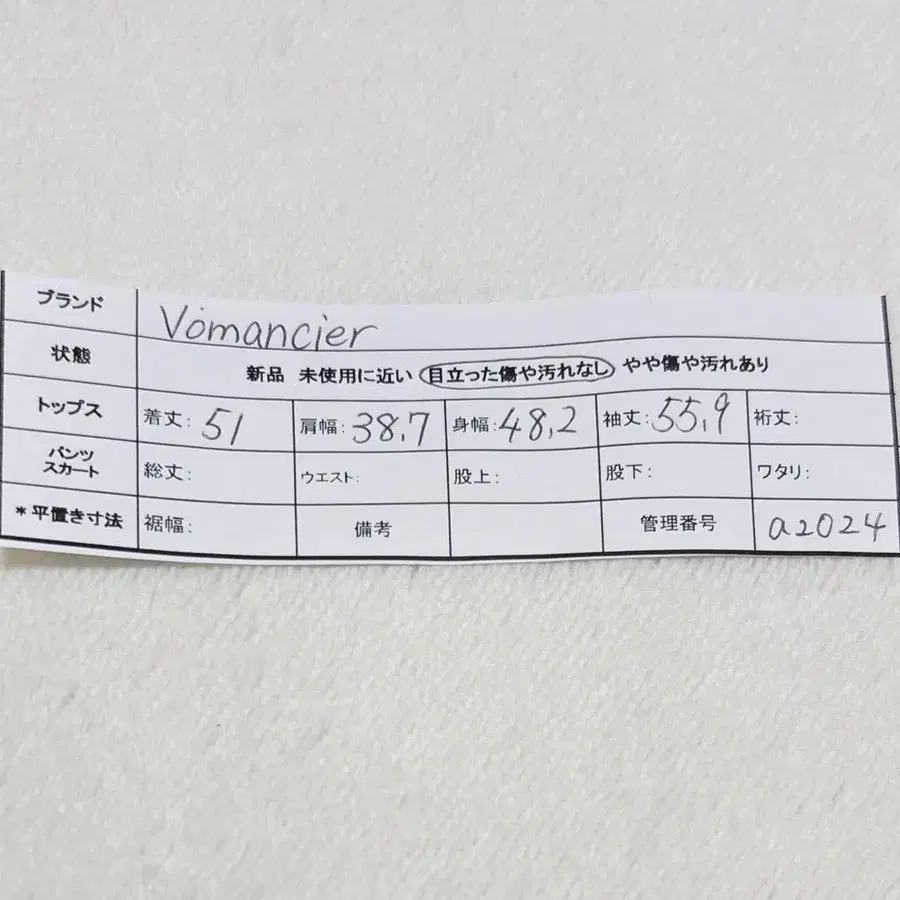 ブランド Vomancier
状態 新品 未使用に近い 目立った傷や汚れなし やや傷や汚れあり
トップス 着丈: 51 肩幅: 38,7 身幅: 48,2 袖丈: 55,9 裄丈:
パンツ スカート 総丈: ウエスト: 股上: 股下: ワタリ:
*平置き寸法 裾幅: 備考 管理番号 a2024